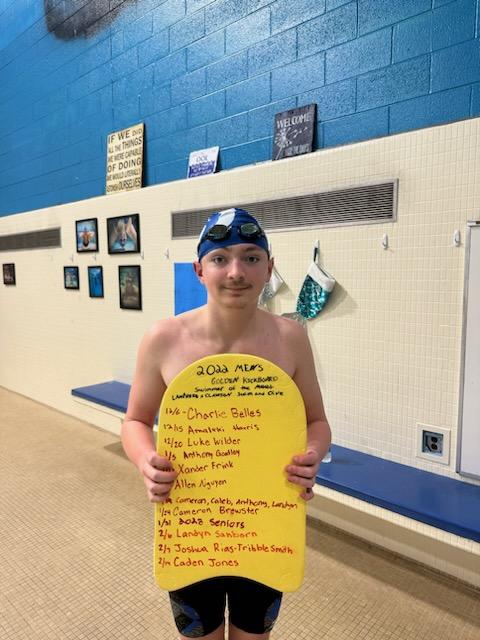 IF WE DID
ALL THE THINGS
WE WERE CAPABLE
OF DOING
WE WOULD LITERALLY
ASTONISH OURSELVES
OUR
WELCOME
2022 MEN'S
GOLDEN KICKBOARD
Swimmer of the
LAMPHERE & CLAWSON Swim and Dive
12/6 - Charlie Belles
12/15 Amaluki Harris
12/20 Luke Wilder
1/5 Anthony Godley
Xander Frink
Allen Nguyen
Cameron, Caleb, Anthony, Landyn
1/24 Cameron Brewster
1/31 2022 Seniors
2/6 Landyn Sanborn
2/7 Joshua Rias-Tribble Smith
2/14 Caden Jones